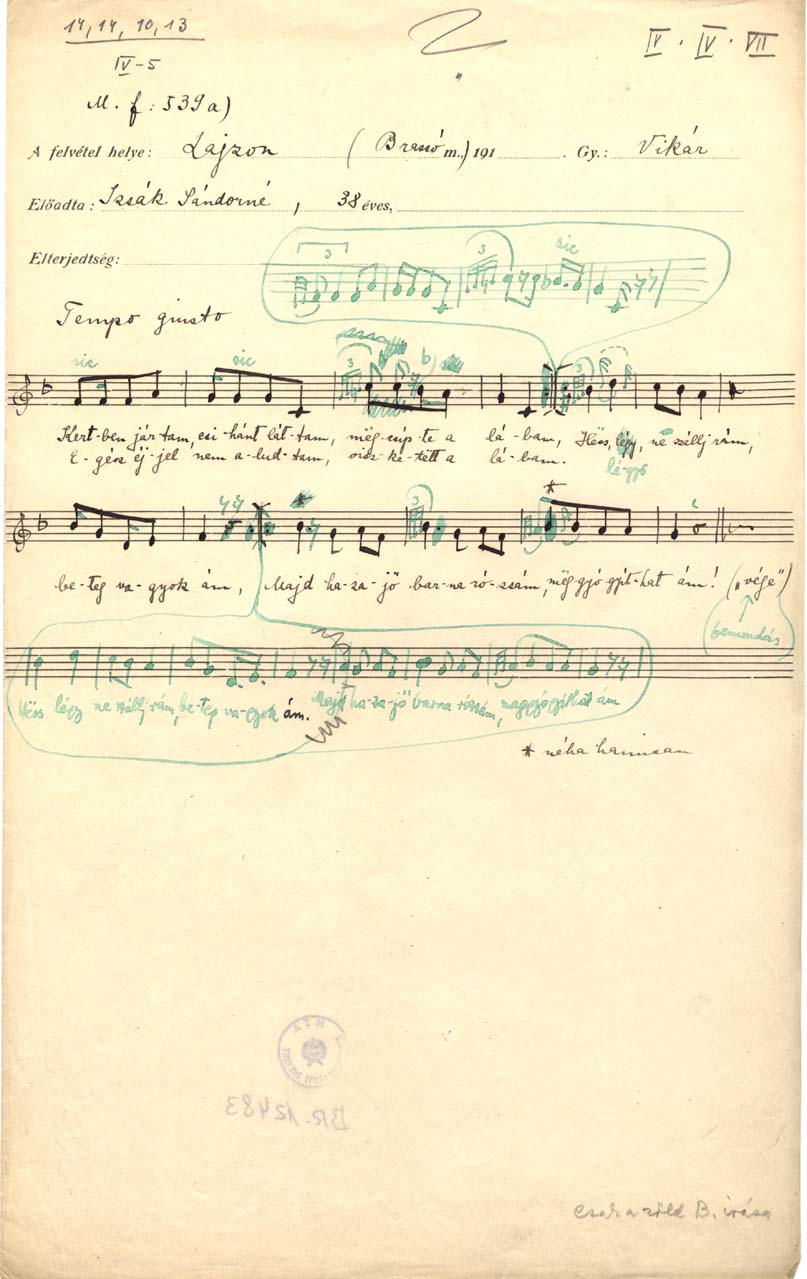 14, 14, 10, 13
IV-5
IV · IV · VII
M. f: 539a)
A felvétel helye: Lajzon (Brassó m.,) 191 . Gy.: Vikár
Előadta: Izsák Sándorné, 38 éves,
Elterjedtség:
3 3 sic
Tempo giusto
sic sic 3 b) 3
Kert-ben jár-tam, csi-hánt lát-tam, még-csíp-te a lá-bam, Hëss, légy, ne szállj rám,
E-gész éj-jel nem a-lud-tam, visz-ke-tëtt a lá-bam.
lé-gyö
* 3 *
be-teg va-gyok ám, Majd ha-za-jő bar-na ró-zsám, mëg-gyó-gyít-hat ám! („vége")
bemondás
Hëss légy ne szállj-rám, be-teg va-gyok ám. Majd ha-za-jő barna rózsám, maggyógyithat ám
* néha hamisan
BR. 12483
Csak a zöld B. írása